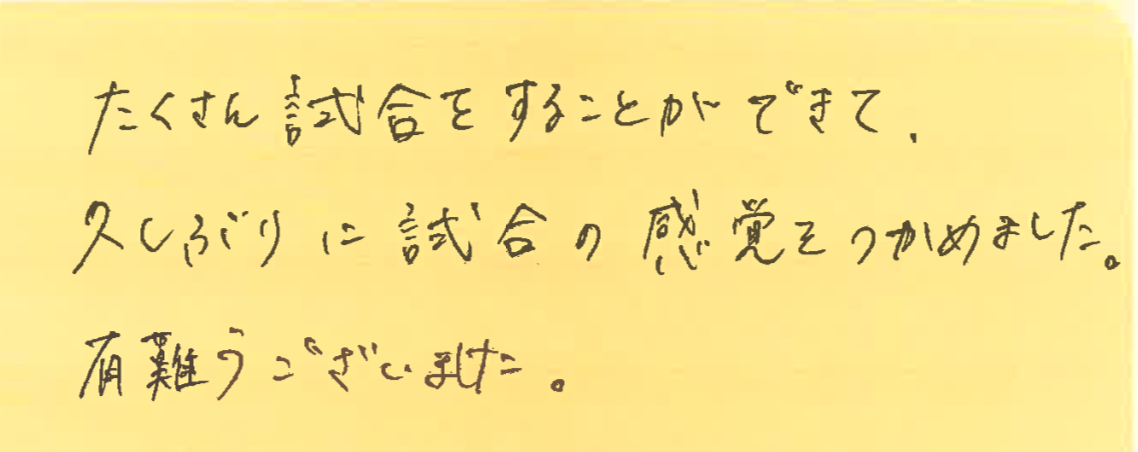 たくさん試合をすることができて、
久しぶりに試合の感覚をつかめました。
有難うございました。